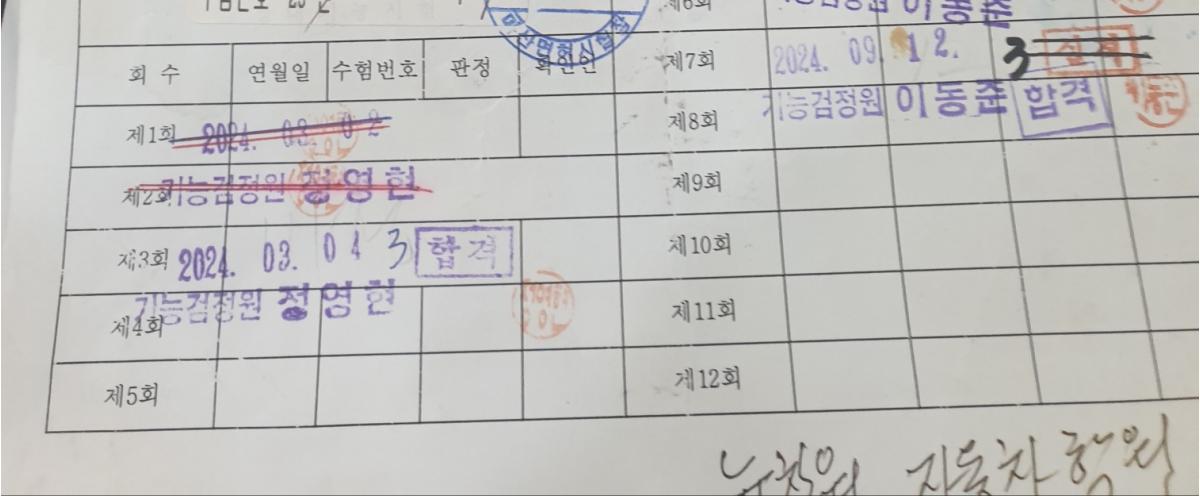 제6회
이동준
회 수 연월일 수험번호 판정 확인인
제1회 2024. 03. 02
제2회 기능검정원 정영현
제3회 2024. 03. 04 3 합격
제4회 기능검정원 정영현
제5회
제7회 2024. 09. 12. 3
제8회 기능검정원 이동준 합격
제9회
제10회
제11회
제12회
자동차학원